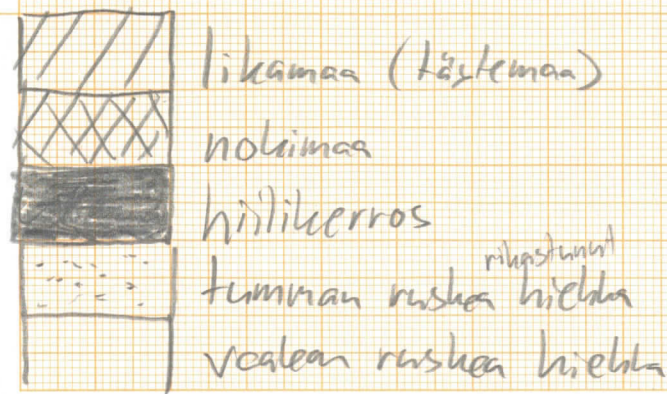 likamaa (täytemaa)
nokimaa
hiilikerros
tumman ruskea rikastunut hiekka
vaalean ruskea hiekka